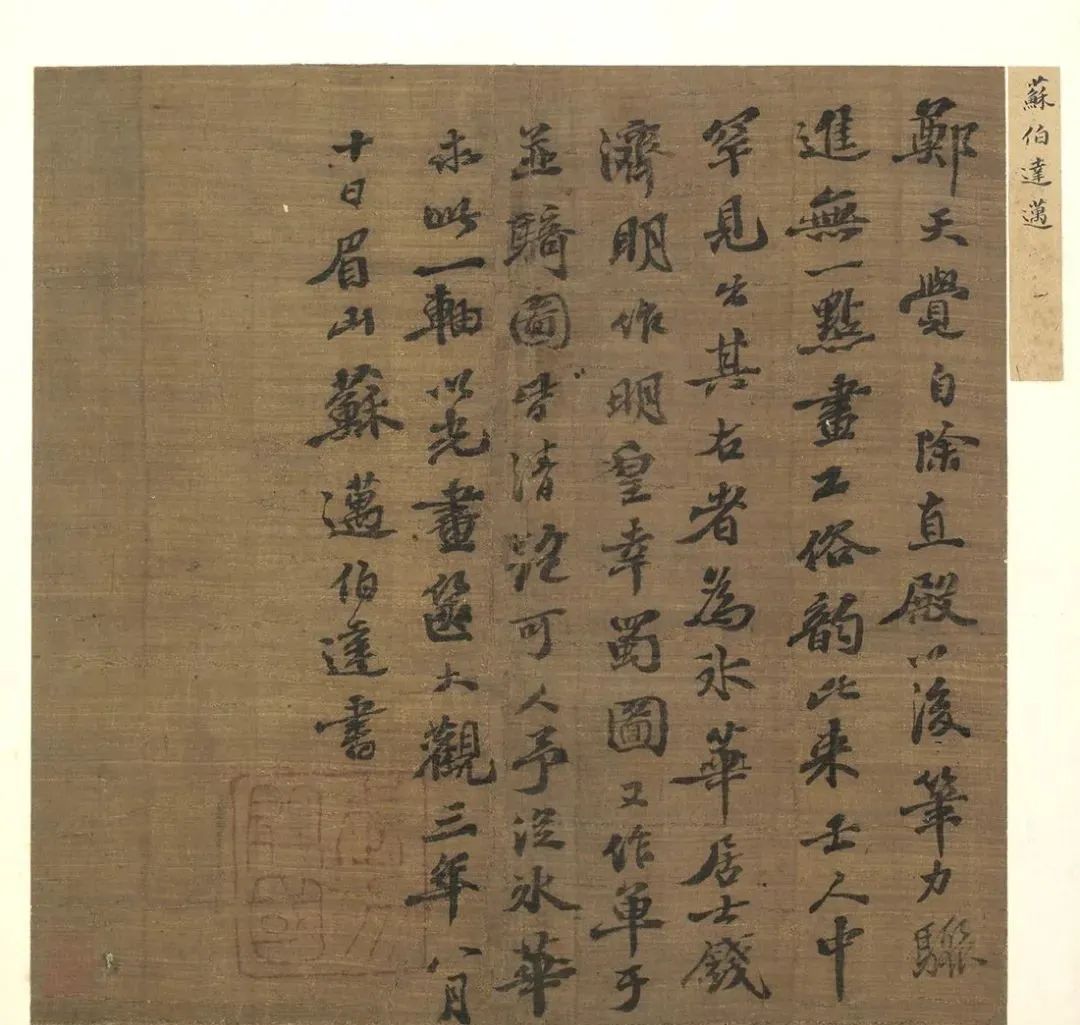 蘇伯達邁
鄭天覺自除直殿以後筆力驟
進無一點畫工俗韵比來士人中
罕見出其右者為冰華居士錢
濟明作明皇幸蜀圖又作單于
並騎圖皆清絕可人予從冰華
求此一軸以光畫篋大觀三年八月
十日眉山蘇邁伯達書